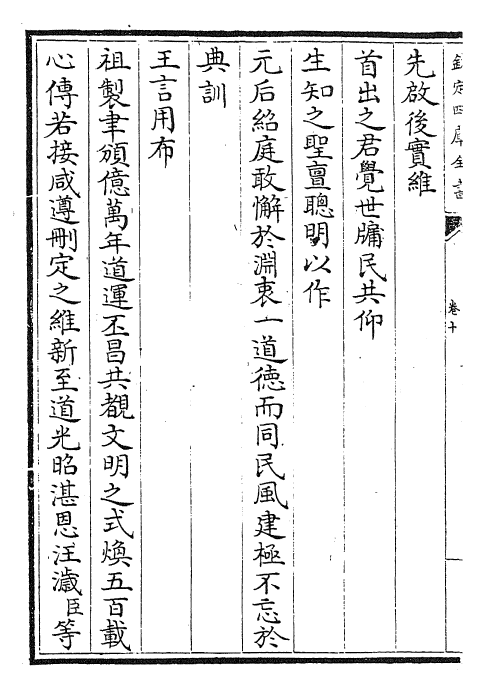 欽定四庫全書
卷十
先啟後實維
首出之君覺世牖民共仰
生知之聖亶聰明以作
元后紹庭敢懈於淵衷一道德而同民風建極不忘於
典訓
王言用布
祖製聿頒億萬年道運丕昌共覩文明之式煥五百載
心傳若接咸遵刪定之維新至道光昭湛恩汪濊臣等